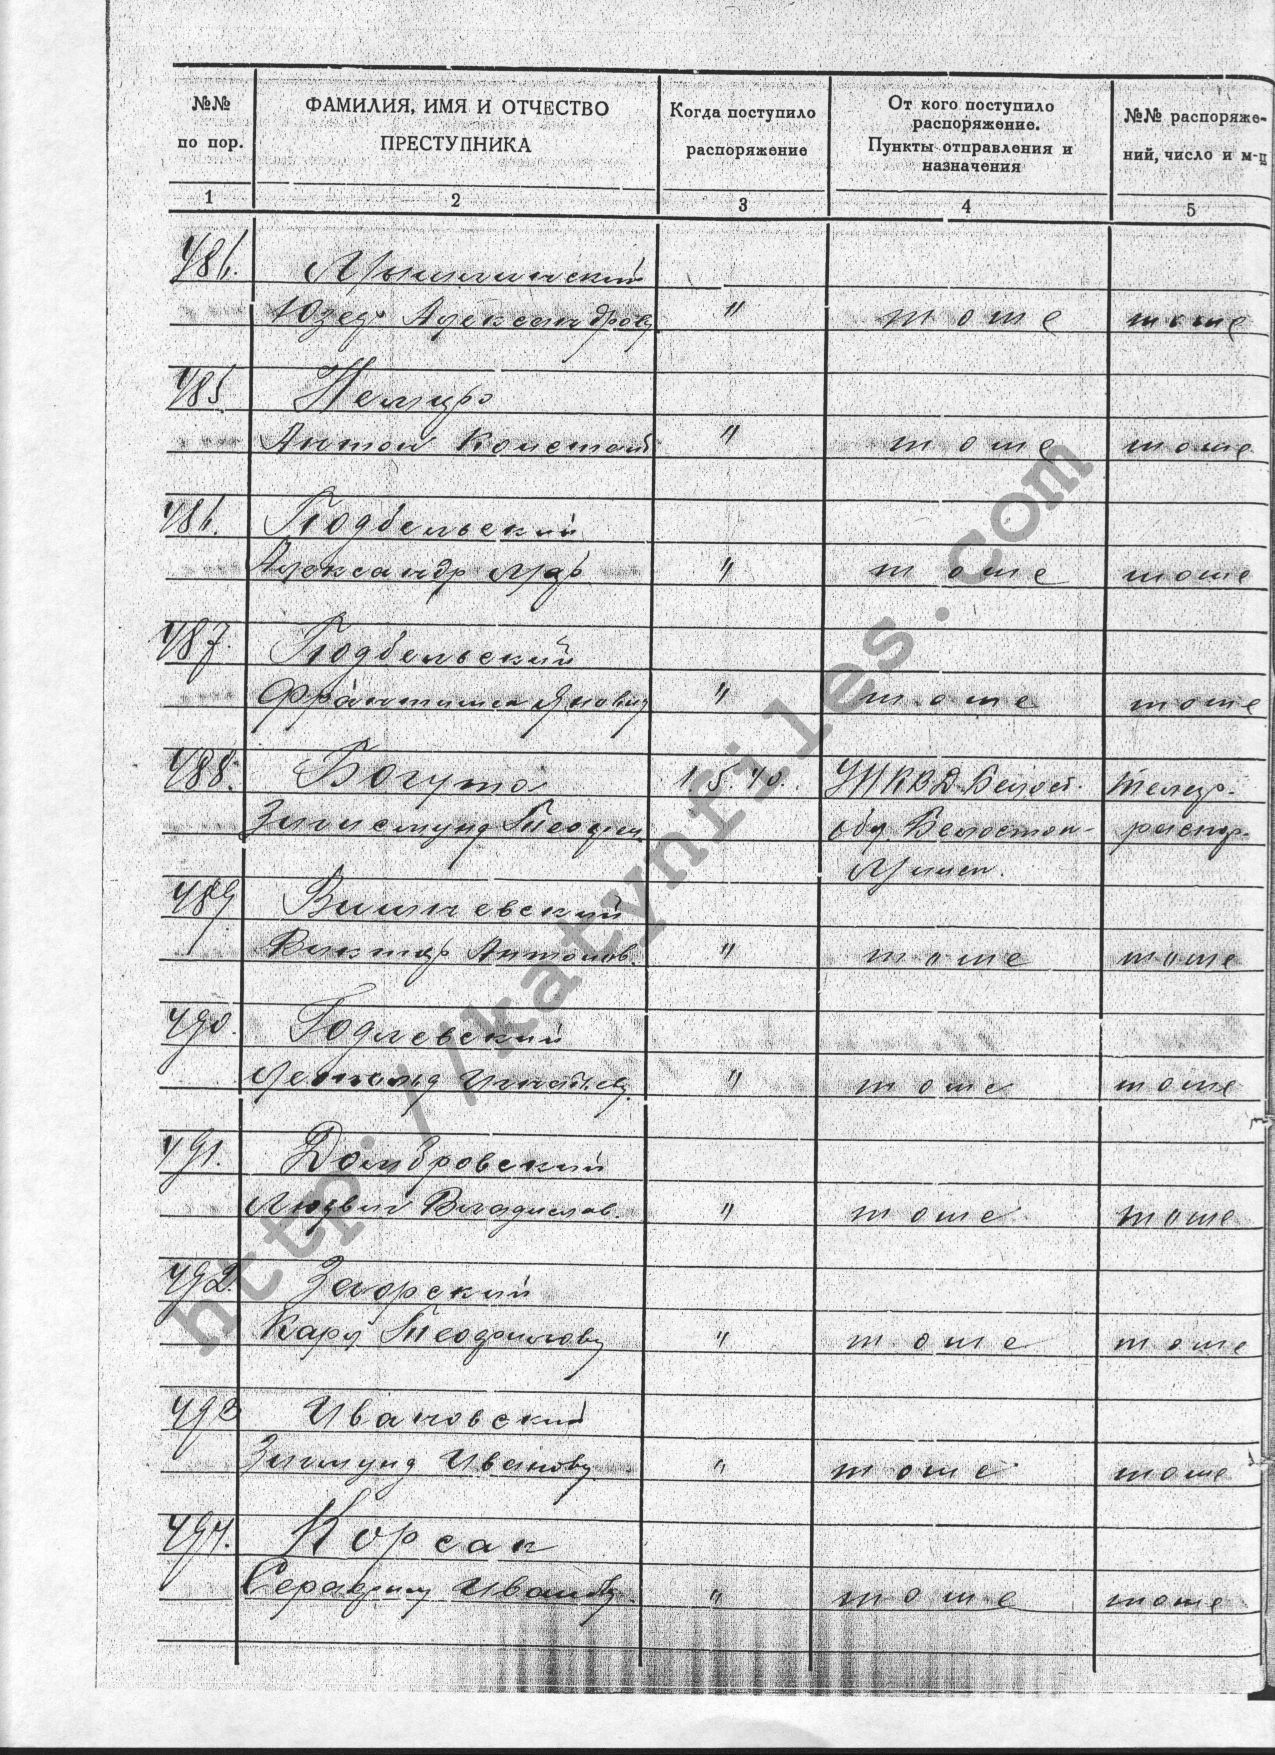 №№ по пор.
ФАМИЛИЯ, ИМЯ И ОТЧЕСТВО ПРЕСТУПНИКА
Когда поступило распоряжение
От кого поступило распоряжение. Пункты отправления и назначения
№№ распоряже-
ний, число и м-ц
1 2 3 4 5
Юзеф Александров " тоже тоже
485 Немиро
Антон Констант " тоже тоже
486. Подбельский
Александр " тоже тоже
487. Подбельский
Францишек Янович " тоже тоже
488. Богуто 1.5.40. УНКВД Белост. Телегр.
Зигисмунд обл. Белосток- распор.
Минск.
489 Вишневский
Виктор Антонов. " тоже тоже
490. Годлевский
" тоже тоже
491. Домбровский
Людвиг Владислав. " тоже тоже
492. Загорский
Карл Теофилович " тоже тоже
493 Ивановский
Зигмунд Иванович " тоже тоже
494. Корсак
Серафим Иванов " тоже тоже
http://katynfiles.com